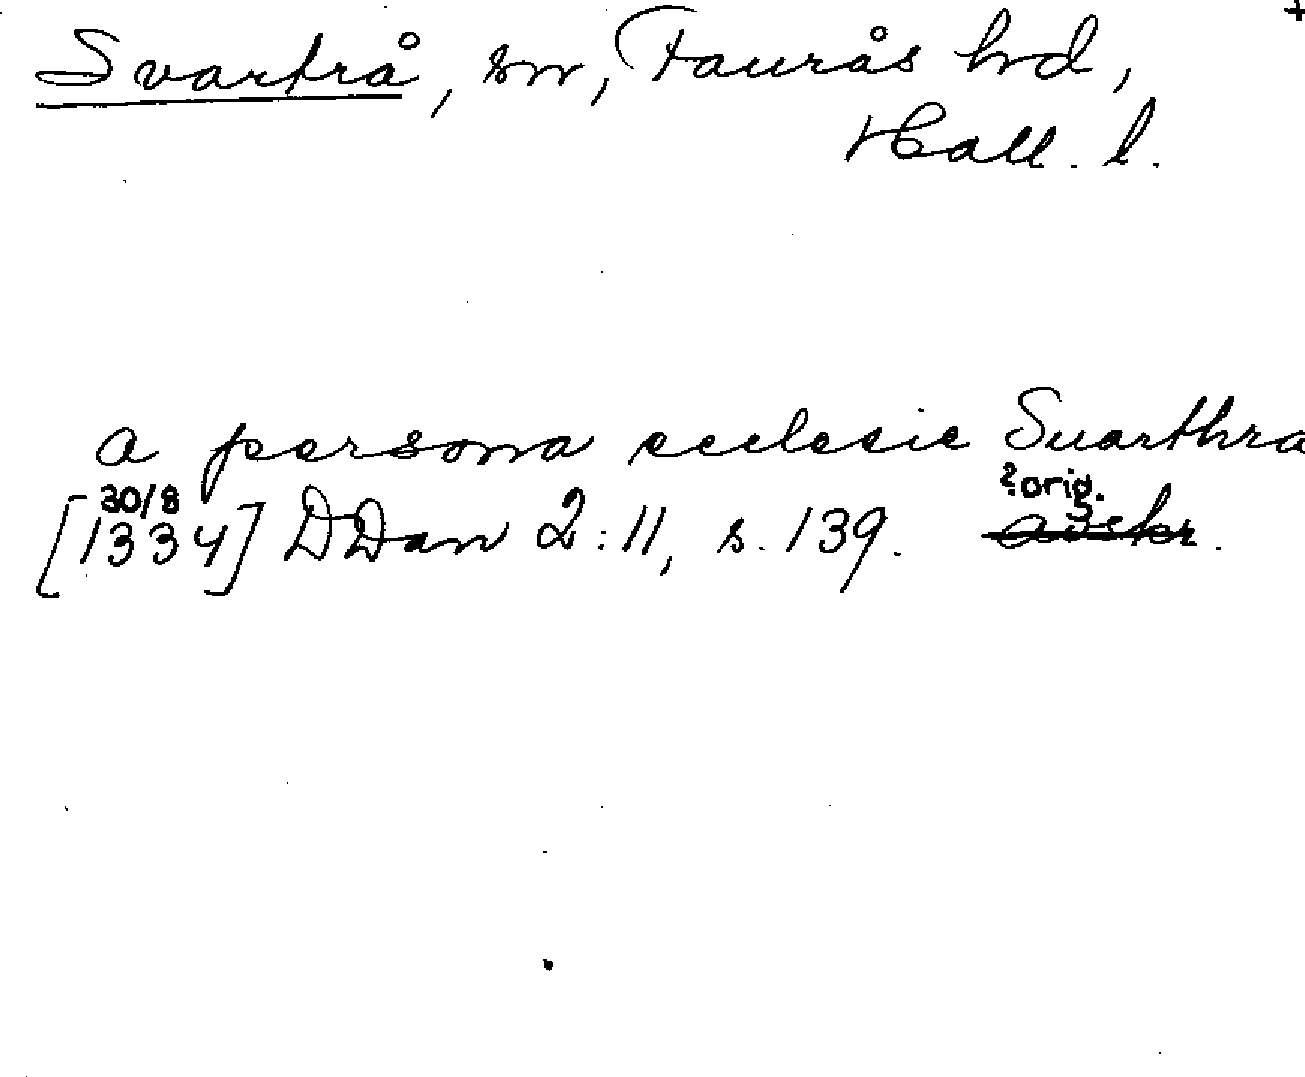 Svartrå, sn, Faurås hd,
Hall. l.
a persona ecclesie Suarthra
30/8 ?orig.
[1334] DDan 2:11, s. 139. avskr.